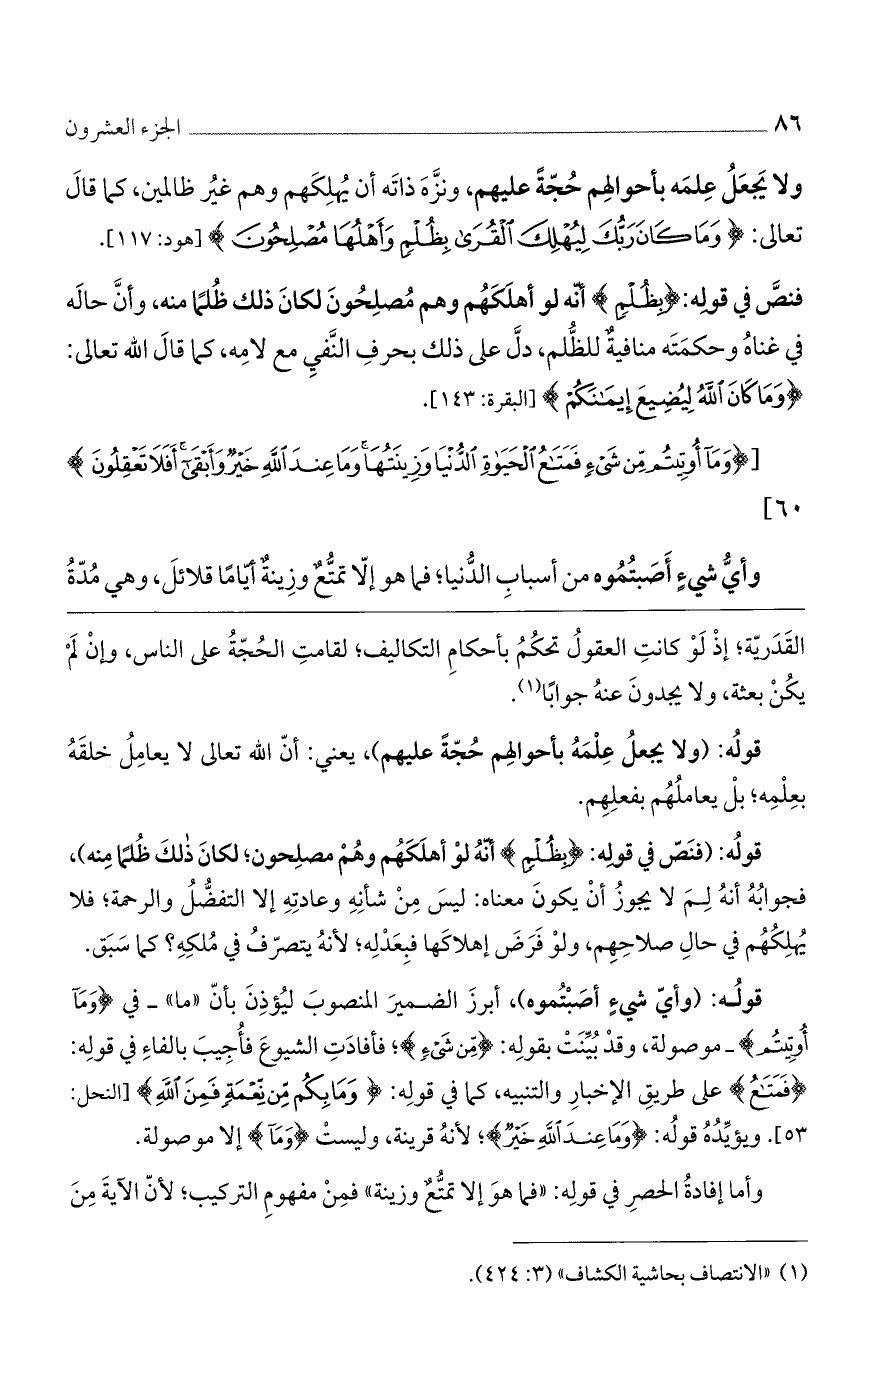 ٨٦ الجزء العشرون
ولا يَجعَلُ عِلمَه بأحوالِهم حُجّةً عليهم، ونزَّهَ ذاتَه أن يُهلِكَهم وهم غيرُ ظالمين، كما قالَ
تعالى: ﴿ وَمَا كَانَ رَبُّكَ لِيُهْلِكَ ٱلْقُرَىٰ بِظُلْمٍ وَأَهْلُهَا مُصْلِحُونَ ﴾ [هود: ١١٧].
فنصَّ في قولِه: ﴿بِظُلْمٍ ﴾ أنّه لو أهلَكَهُم وهم مُصلِحُونَ لكانَ ذلك ظُلمًا منه، وأنَّ حالَه
في غناهُ وحكمَتَه منافيةٌ للظُّلم، دلَّ على ذلك بحرفِ النَّفيِ مع لامِه، كما قالَ الله تعالى:
﴿وَمَا كَانَ ٱللَّهُ لِيُضِيعَ إِيمَـٰنَكُمْ ﴾ [البقرة: ١٤٣].
[﴿وَمَآ أُوتِيتُم مِّن شَىْءٍ فَمَتَـٰعُ ٱلْحَيَوٰةِ ٱلدُّنْيَا وَزِينَتُهَا ۚ وَمَا عِندَ ٱللَّهِ خَيْرٌ وَأَبْقَىٰٓ ۚ أَفَلَا تَعْقِلُونَ ﴾
٦٠]
وأيُّ شيءٍ أَصَبتُمُوه من أسبابِ الدُّنيا؛ فما هو إلّا تمتُّعٌ وزِينةٌ أيّامًا قلائلَ، وهي مُدّةُ
القَدَريّة؛ إذْ لَوْ كانتِ العقولُ تحكُمُ بأحكامِ التكاليف؛ لقامتِ الحُجّةُ على الناس، وإنْ لَمْ
يكُنْ بعثة، ولا يجدونَ عنهُ جوابًا(١).
قولُه: (ولا يجعلُ عِلْمَهُ بأحوالِهِم حُجّةً عليهم)، يعني: أنّ الله تعالى لا يعامِلُ خلقَهُ
بعِلْمِه؛ بلْ يعاملُهُم بفعلِهِم.
قولُه: (فنَصّ في قولِه: ﴿بِظُلْمٍ ﴾ أنّهُ لوْ أهلَكَهُم وهُمْ مصلِحون؛ لكانَ ذٰلكَ ظُلمًا مِنه)،
فجوابُهُ أنهُ لِـمَ لا يجوزُ أنْ يكونَ معناه: ليسَ مِنْ شأنِهِ وعادتِهِ إلا التفضُّلُ والرحمة؛ فلا
يُهلِكُهُم في حالِ صلاحِهِم، ولوْ فَرَضَ إهلاكَها فبِعَدْلِه؛ لأنهُ يتصرّفُ في مُلكِهِ؟ كما سَبَق.
قولُـه: (وأيّ شيءٍ أصَبْتُموه)، أبرزَ الضـميرَ المنصوبَ ليُؤذِنَ بأنّ «ما» ـ في ﴿وَمَآ
أُوتِيتُم﴾ ـ موصولة، وقدْ بُيِّنَتْ بقولِه: ﴿مِّن شَىْءٍ ﴾؛ فأفادَتِ الشيوعَ فأُجِيبَ بالفاءِ في قولِه:
﴿فَمَتَـٰعُ ﴾ على طريقِ الإخبارِ والتنبيه، كما في قولِه: ﴿ وَمَا بِكُم مِّن نِّعْمَةٍ فَمِنَ ٱللَّهِ ﴾ [النحل:
٥٣]. ويؤيِّدُهُ قولُه: ﴿وَمَا عِندَ ٱللَّهِ خَيْرٌ﴾؛ لأنهُ قرينة، وليستْ ﴿وَمَا ﴾ إلا موصولة.
وأما إفادةُ الحصرِ في قولِه: «فما هوَ إلا تمتُّعٌ وزينة» فمِنْ مفهومِ التركيب؛ لأنّ الآيةَ مِنَ
(١) «الانتصاف بحاشية الكشاف» (٣: ٤٢٤).